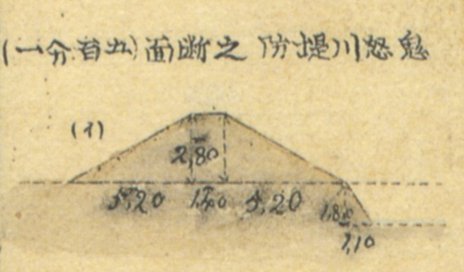 鬼怒川堤防之断面(五百分一)
(イ)
2,80
5,20 1,50 5,20 1,80
1,10